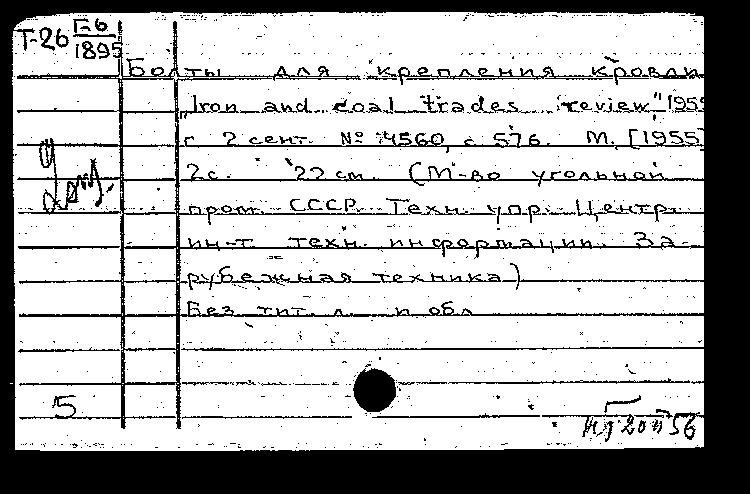 Т-26 Г-6
1895
Болты для крепления кровли
„Iron and coal trades review," 1955
г 2 сент. № 4560, с 576. М. [1955]
2с. 22 см. (М-во угольной
пром. СССР. Техн. упр. Центр.
ин-т. техн. информации. За-
рубежная техника)
Без тит. л. и обл
5